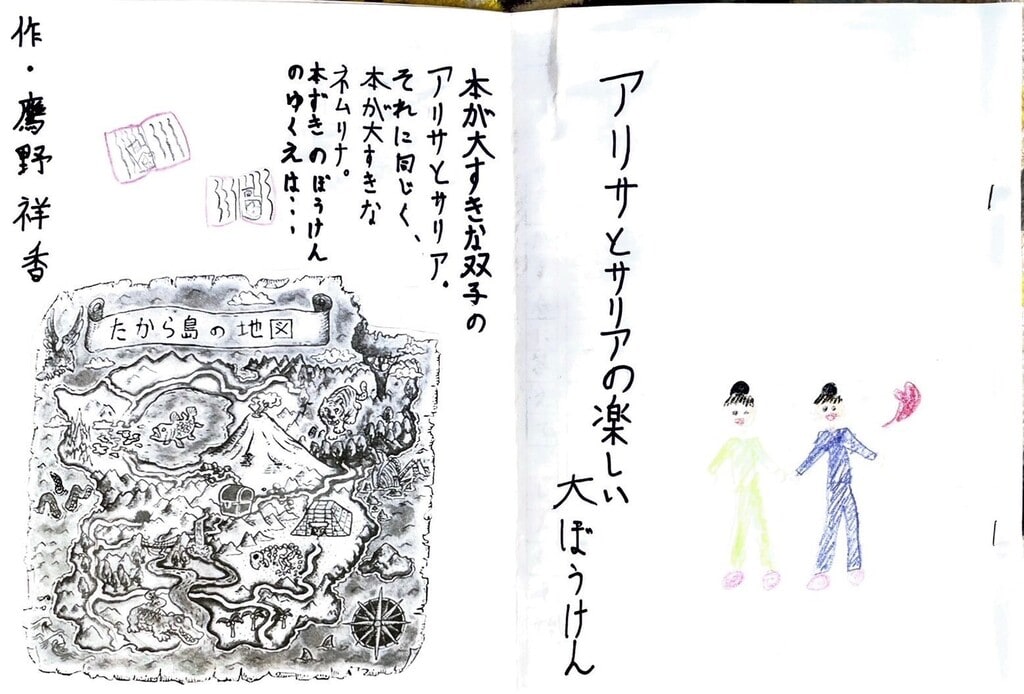 アリサとサリアの楽しい
大ぼうけん
本が大すきな双子の
アリサとサリア.
それに同じく、
本が大すきな
ネムリナ。
本ずきのぼうけん
のゆくえは・・・
作・鷹野祥香
たから島の地図